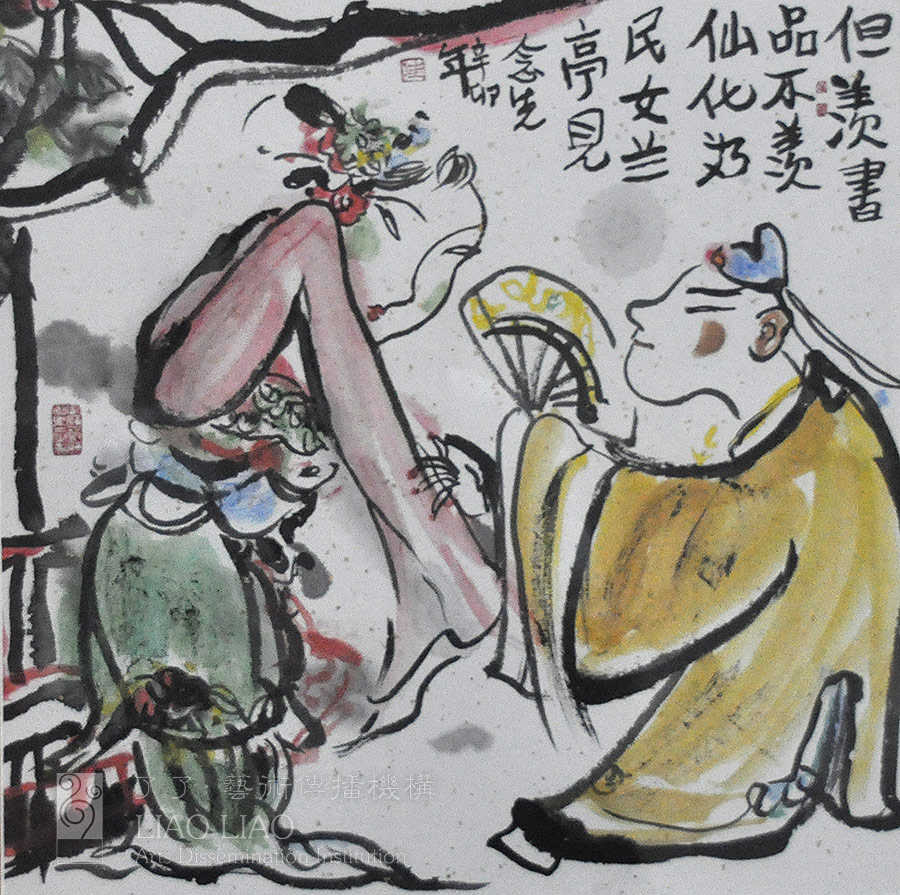 但羡書
品不羡
仙化为
民女兰
亭見
念先
辛卯
年
了了·藝術傳播機構
LIAO LIAO
Arts Dissemination Institution